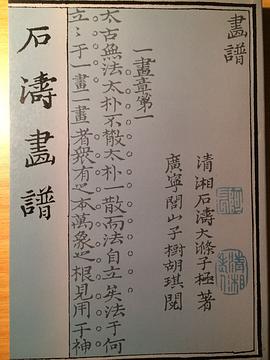 畫譜
清湘石濤大滌子極著
廣寧閭山子樹胡琪閱
一畫章第一
太古無法太朴不散太朴一散而法自立矣法于何
立〻于一畫一畫者衆有之本萬象之根見用于神
石濤畫譜